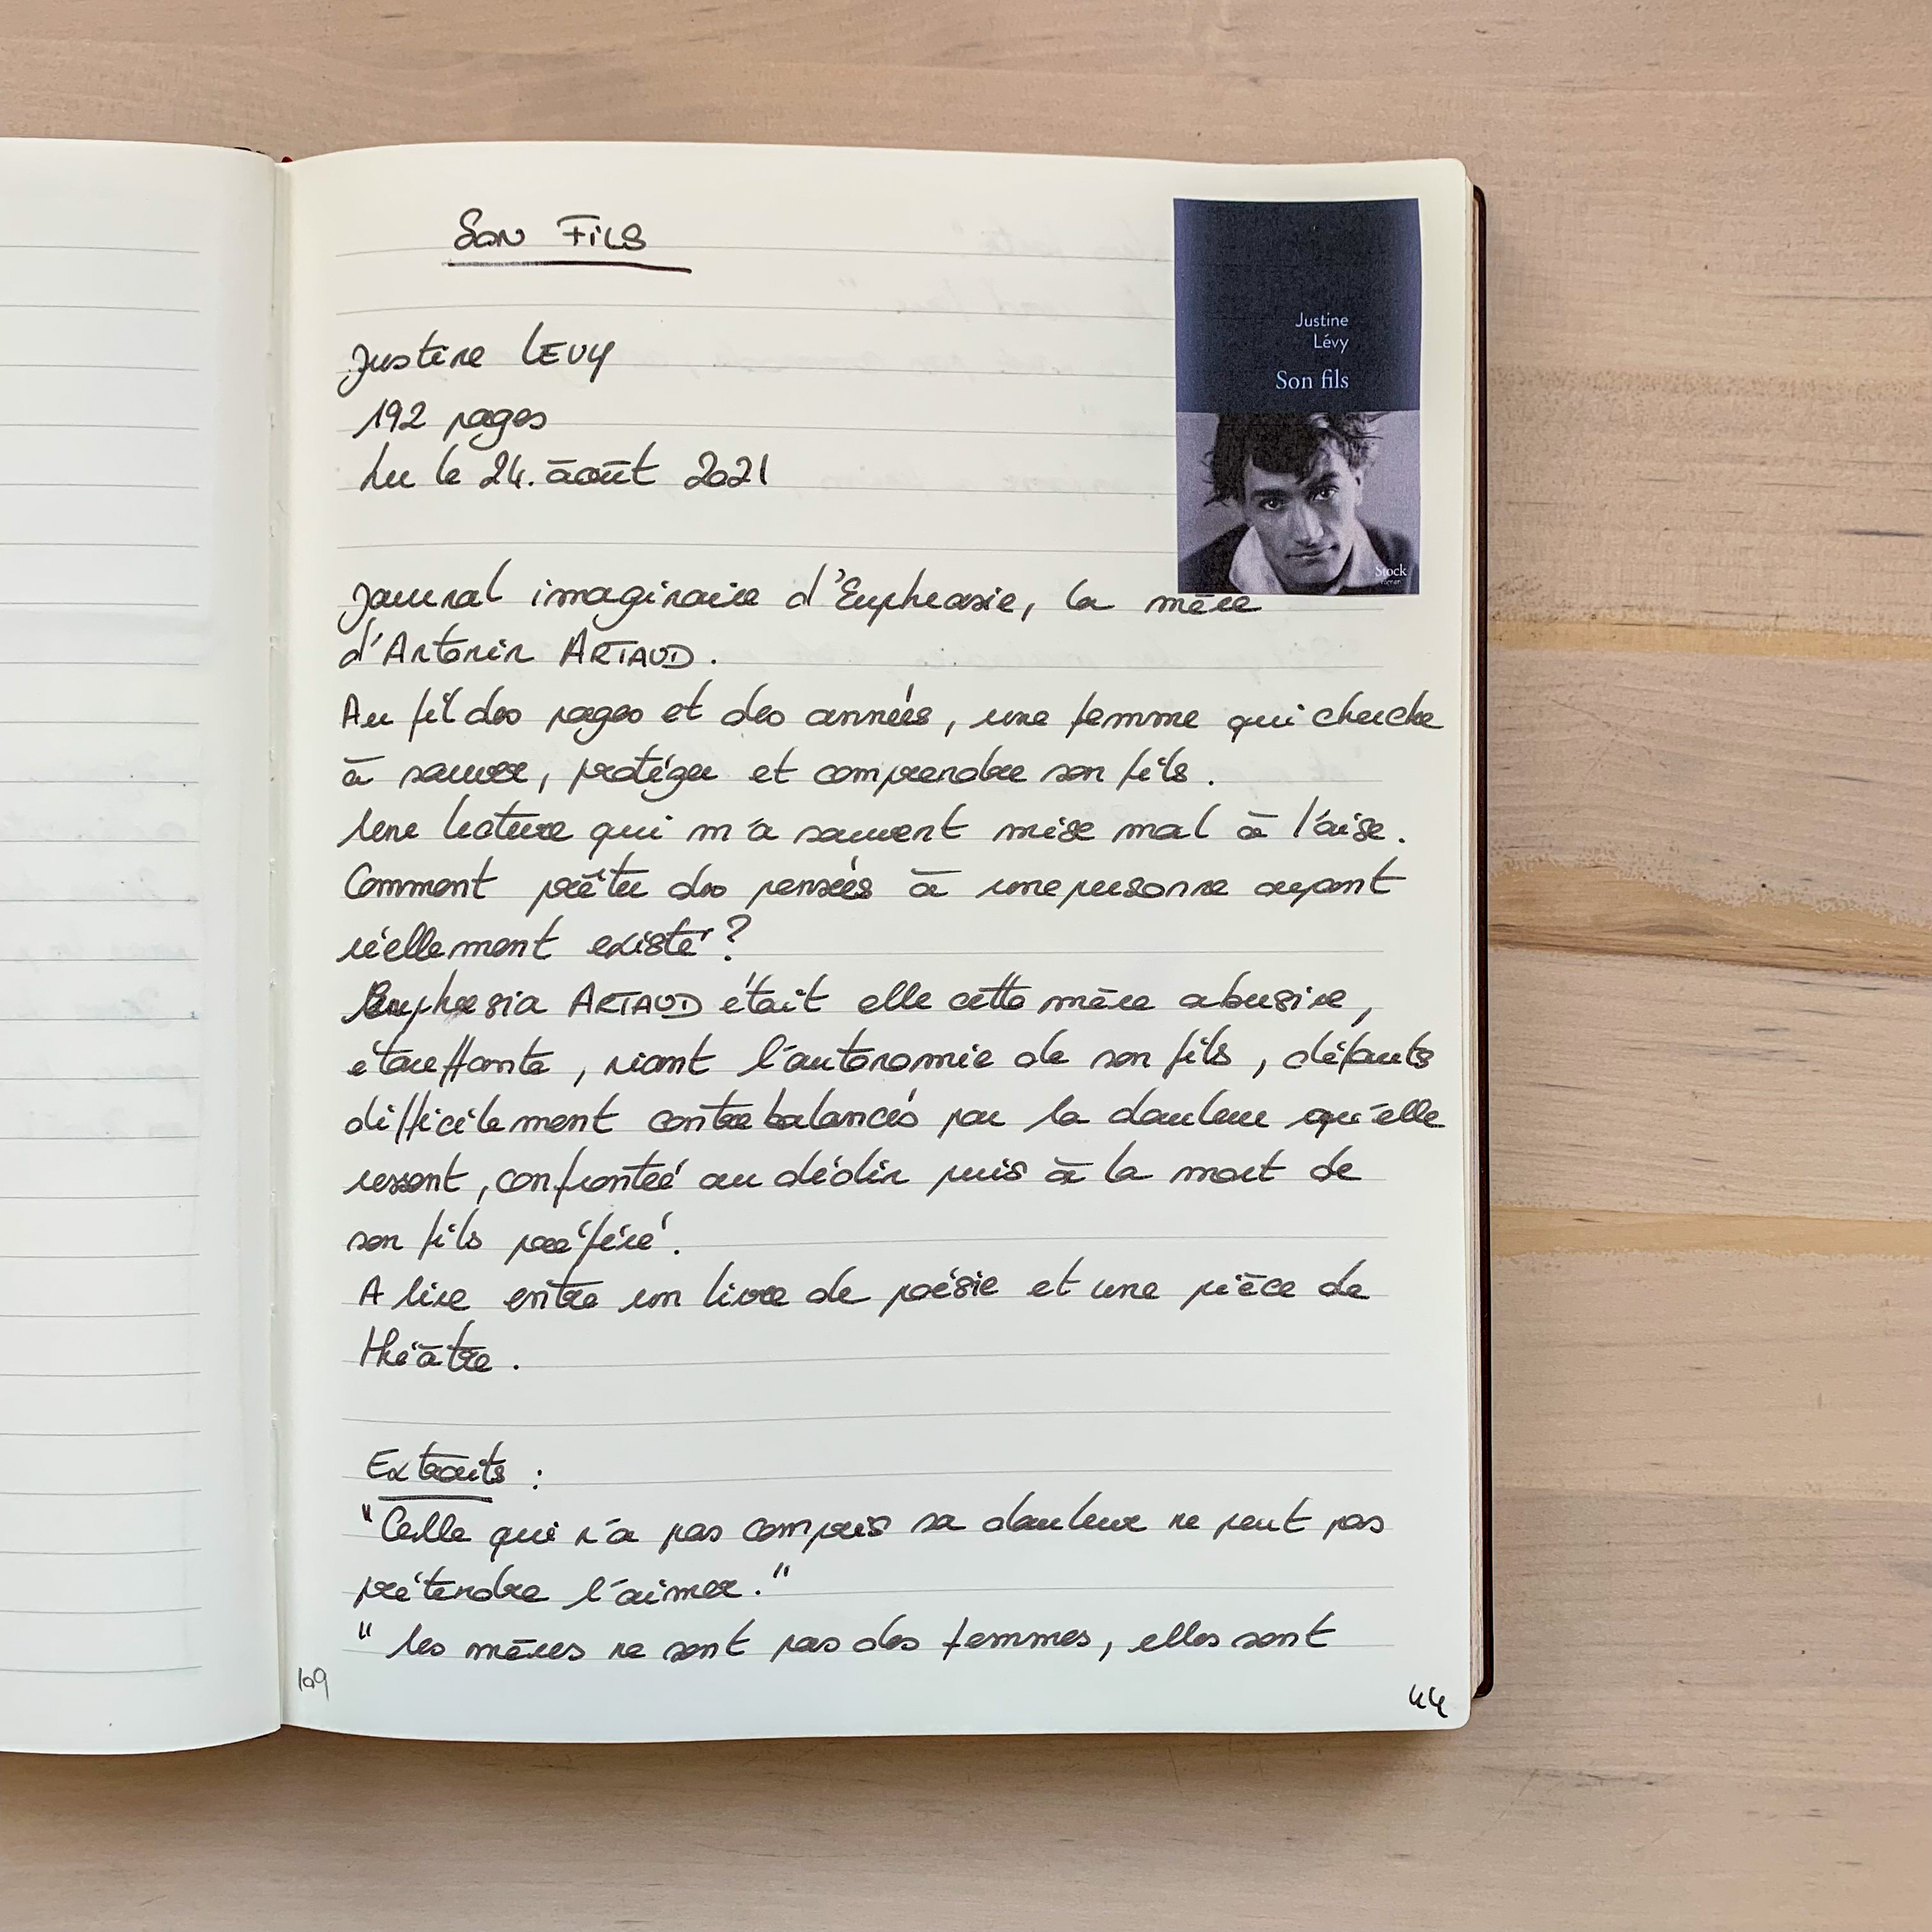 Son Fils
Justine LEVY
192 pages
Lu le 24. août 2021
Justine
Lévy
Son fils
Stock
roman
Journal imaginaire d'Euphrasie, la mère
d'Antonin ARTAUD.
Au fil des pages et des années, une femme qui cherche
à sauver, protéger et comprendre son fils.
Une lecture qui m'a souvent mise mal à l'aise.
Comment prêter des pensées à une personne ayant
réellement existé ?
Euphrasia ARTAUD était elle cette mère abusive,
étouffante, niant l'autonomie de son fils, défauts
difficilement contrebalancés par la douleur qu'elle
ressent, confrontée au déclin puis à la mort de
son fils préféré.
A lire entre un livre de poésie et une pièce de
théâtre.
Extraits :
"Celle qui n'a pas compris sa douleur ne peut pas
prétendre l'aimer."
"Les mères ne sont pas des femmes, elles sont
109
44